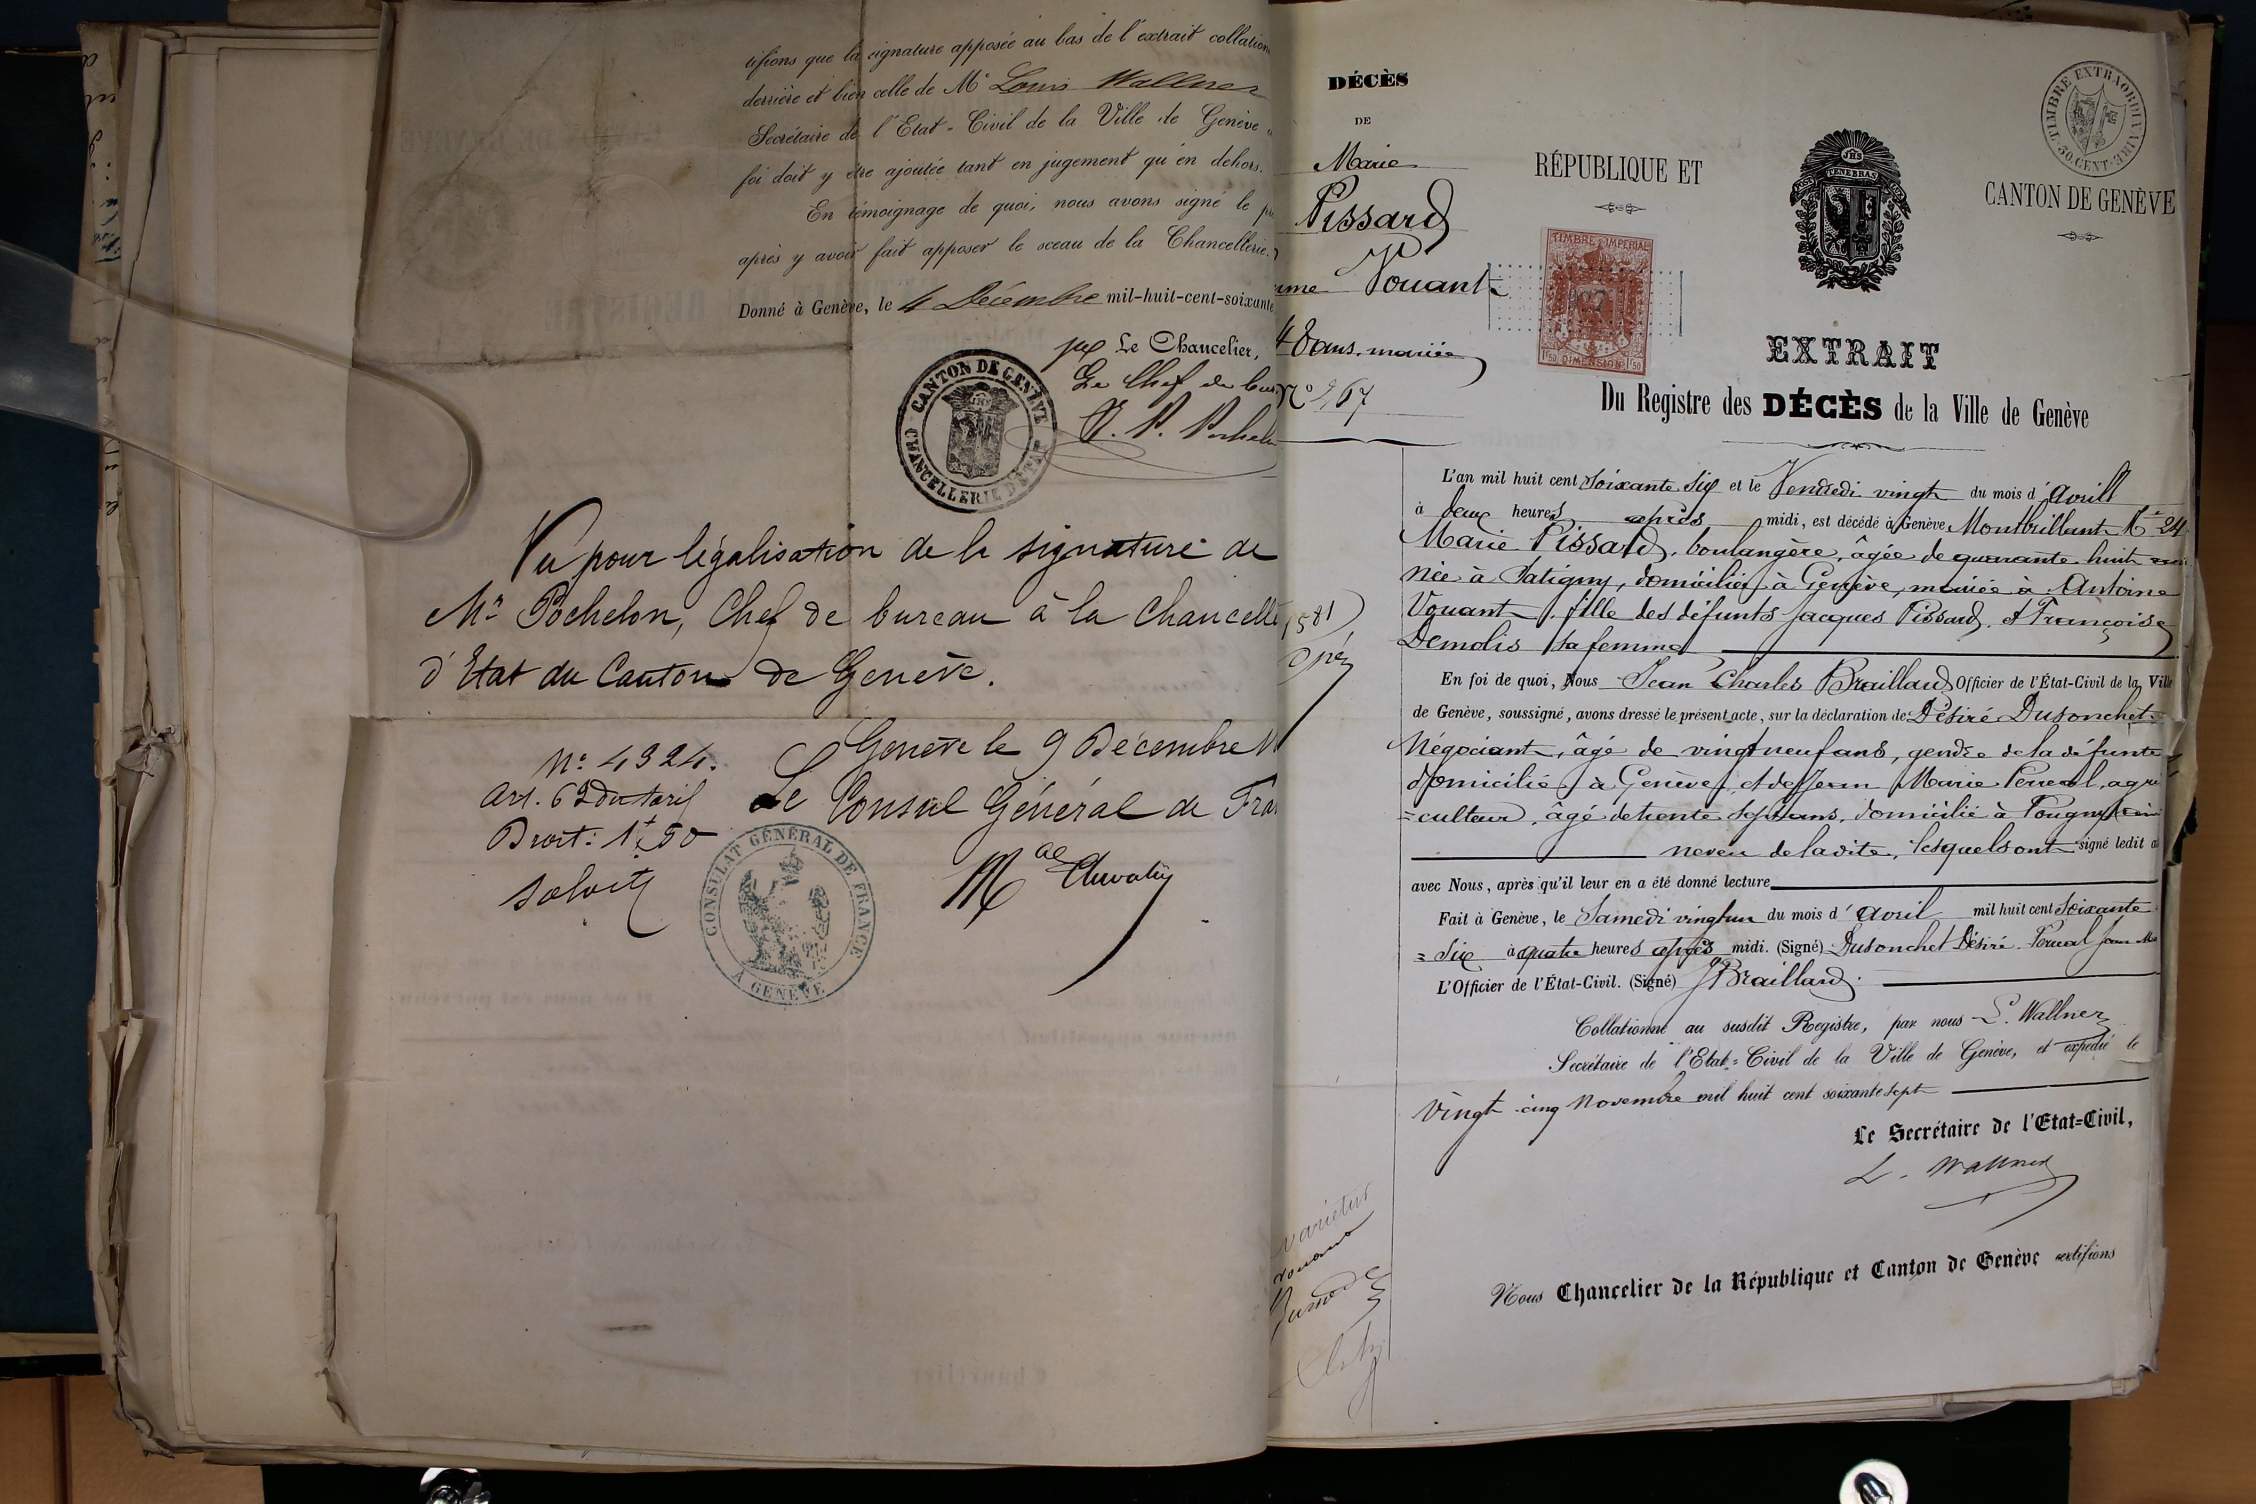 tifions que la signature apposée au bas de l'extrait collation
derrière et bien celle de Mr Louis Wallner
Secrétaire de l'Etat-Civil de la Ville de Genève
foi doit y être ajoutée tant en jugement qu'en dehors.
En témoignage de quoi, nous avons signé le
après y avoir fait apposer le sceau de la Chancellerie.
Donné à Genève, le 4 Décembre mil-huit-cent-soixante
Le Chancelier,
Le Chef de bur
CANTON DE GENÈVE
CHANCELLERIE D'ETAT
Vu pour légalisation de la signature de
Mr Pochelon, Chef de bureau à la Chancelle
d'Etat du Canton de Genève.
Genève le 9 Décembre
Le Consul Général de Fra
No 4324.
Art. 62 du tarif
Droit: 1f 50
CONSULAT GÉNÉRAL DE FRANCE
A GENÈVE
DÉCÈS
DE
Marie
Pissard
me Vouant
48 ans, mariée
No 267
TIMBRE EXTRAORDINAIRE
50 CENT.
RÉPUBLIQUE ET
CANTON DE GENÈVE
POST TENEBRAS LUX
TIMBRE IMPÉRIAL
1f 50 DIMENSION 1f 50
EXTRAIT
Du Registre des DÉCÈS de la Ville de Genève
L'an mil huit cent soixante six et le Vendredi vingt du mois d'Avril
à deux heures après midi, est décédé à Genève Montbrillant No 24
Marie Pissard, boulangère, âgée de quarante huit ans
née à Satigny, domiciliée à Genève, mariée à Antoine
Vouant, fille des défunts Jacques Pissard, et Françoise
Demolis sa femme
En foi de quoi, Nous Jean Charles Braillard Officier de l'État-Civil de la Ville
de Genève, soussigné, avons dressé le présent acte, sur la déclaration de Désiré Dusonchet
Négociant, âgé de vingt neuf ans, gendre de la défunte
domicilié à Genève, et de Jean Marie Perreal, agri
=culteur, âgé de trente sept ans, domicilié à Pougny
neveu de la dite, lesquels ont signé ledit a
avec Nous, après qu'il leur en a été donné lecture
Fait à Genève, le Samedi vingt un du mois d'Avril mil huit cent soixante
= six à quatre heures après midi. (Signé) Dusonchet Désiré. Perreal Jean Ma
L'Officier de l'État-Civil. (Signé) J Braillard.
Collationné au susdit Registre, par nous L. Wallner
Secrétaire de l'Etat=Civil de la Ville de Genève, et expédié le
Vingt cinq Novembre mil huit cent soixante sept
Le Secrétaire de l'Etat=Civil,
L. Wallner
Nous Chancelier de la République et Canton de Genève certifions
varietur